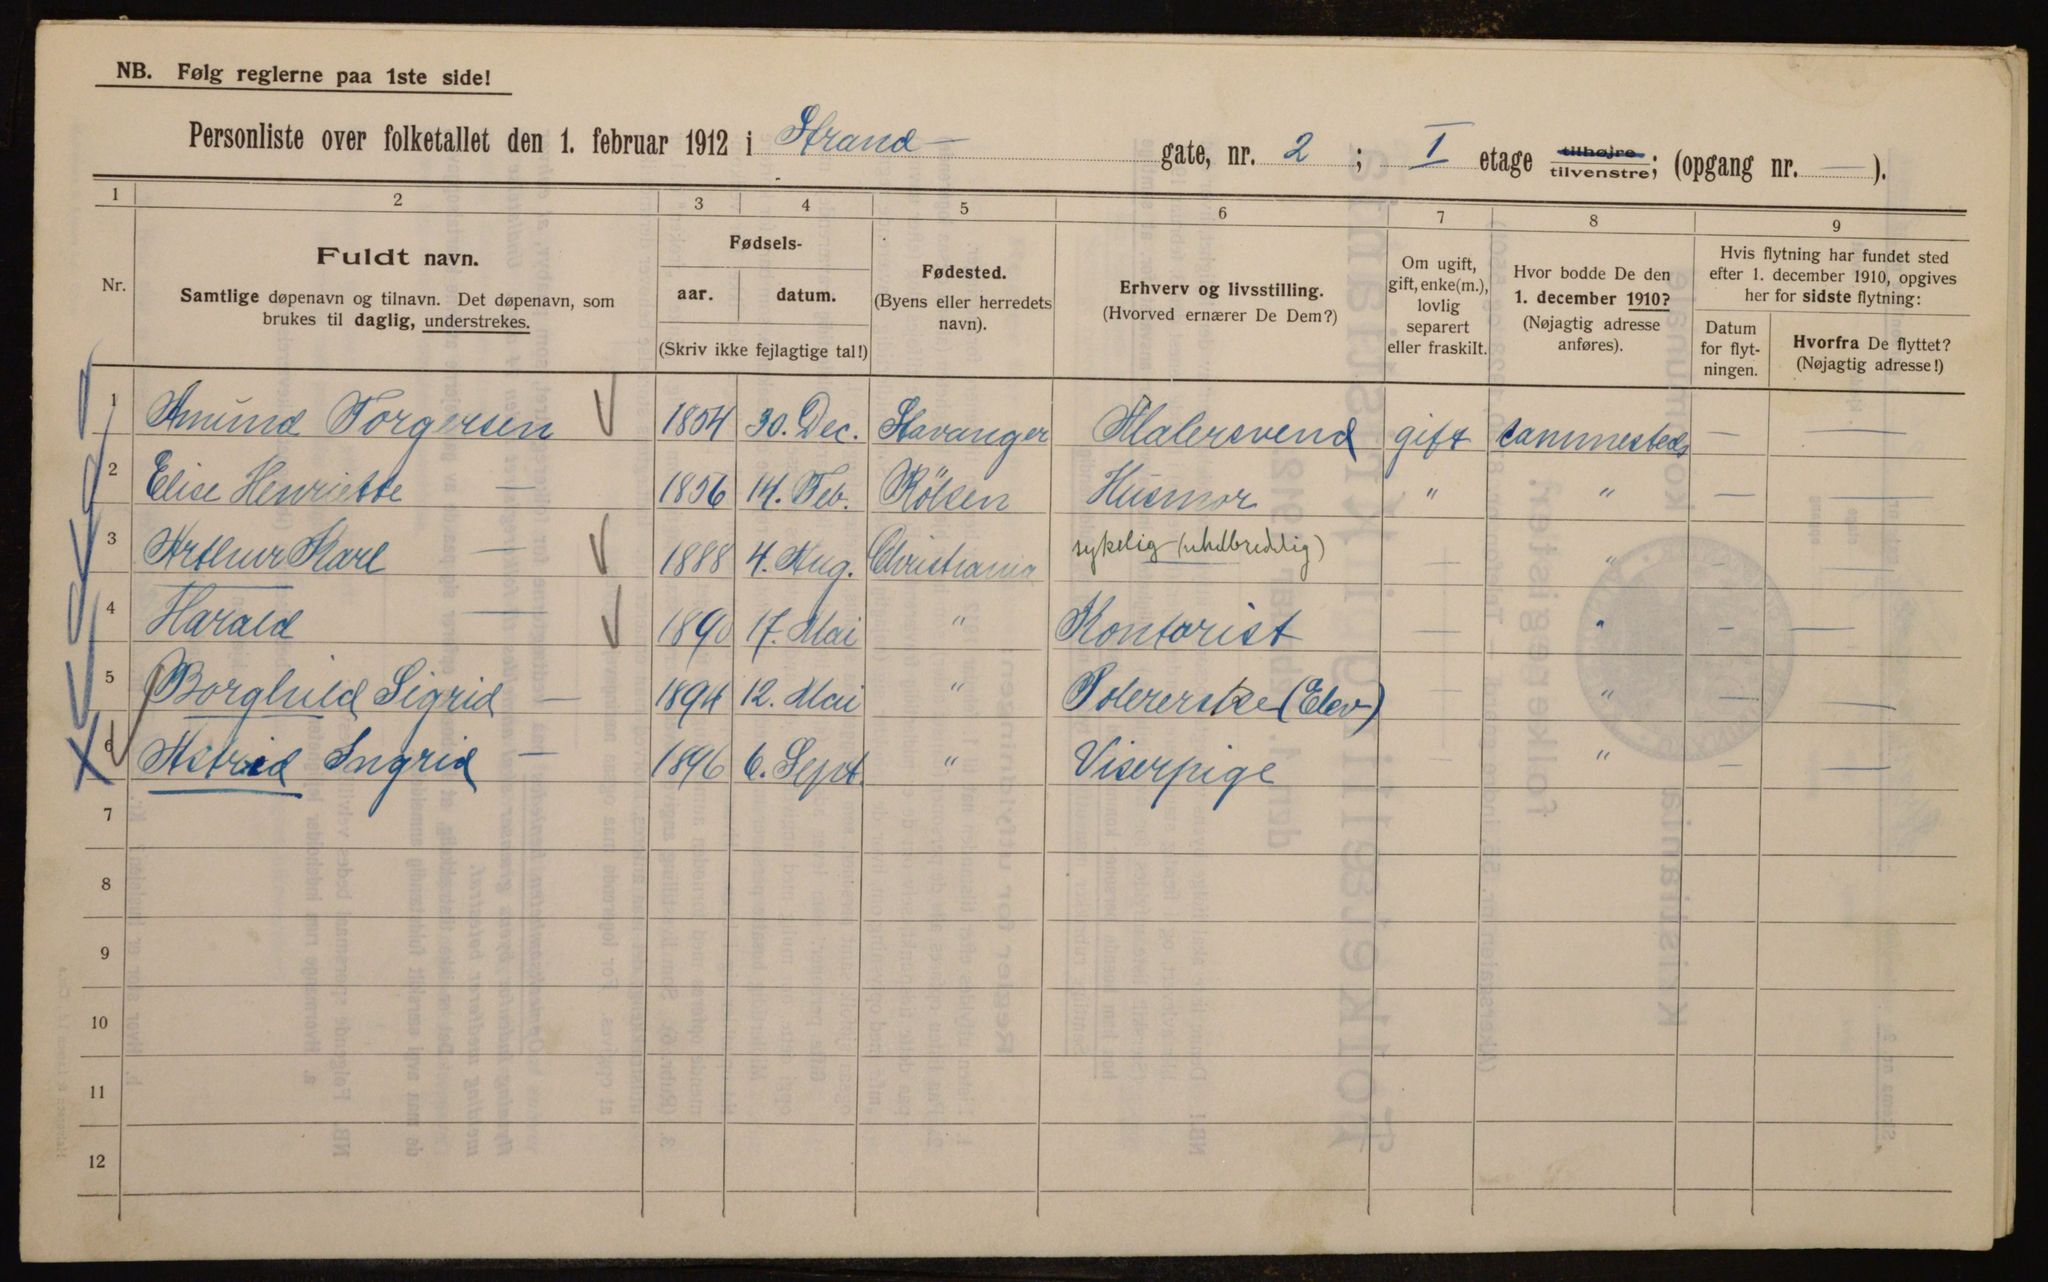 NB. Følg reglerne paa 1ste side!
Personliste over folketallet den 1. februar 1912 i Strand- gate, nr. 2 ; I etage tilhøjre tilvenstre; (opgang nr. — ).
1 2 3 4 5 6 7 8 9
Nr.
Fuldt navn.
Samtlige døpenavn og tilnavn. Det døpenavn, som
brukes til daglig, understrekes.
Fødsels-
aar. datum.
(Skriv ikke fejlagtige tal!)
Fødested.
(Byens eller herredets
navn).
Erhverv og livsstilling.
(Hvorved ernærer De Dem?)
Om ugift,
gift, enke(m.),
lovlig
separert
eller fraskilt.
Hvor bodde De den
1. december 1910?
(Nøjagtig adresse
anføres).
Hvis flytning har fundet sted
efter 1. december 1910, opgives
her for sidste flytning:
Datum
for flyt-
ningen.
Hvorfra De flyttet?
(Nøjagtig adresse!)
1 Amund Torgersen 1854 30. Dec. Stavanger Malersvend gift sammesteds — —
2 Elise Henriette — 1856 14. Feb. Husmor " " — —
3 Arthur Karl — 1888 4. Aug. Christiania sykelig (uhelbredelig) — " — —
4 Harald — 1890 17. Mai " Kontorist — " — —
5 Borghild Sigrid — 1894 12. Mai " Polererske (Elev) — " — —
6 Astrid Ingrid — 1896 6. Sept. " Viserpige — " — —
7
8
9
10
11
12